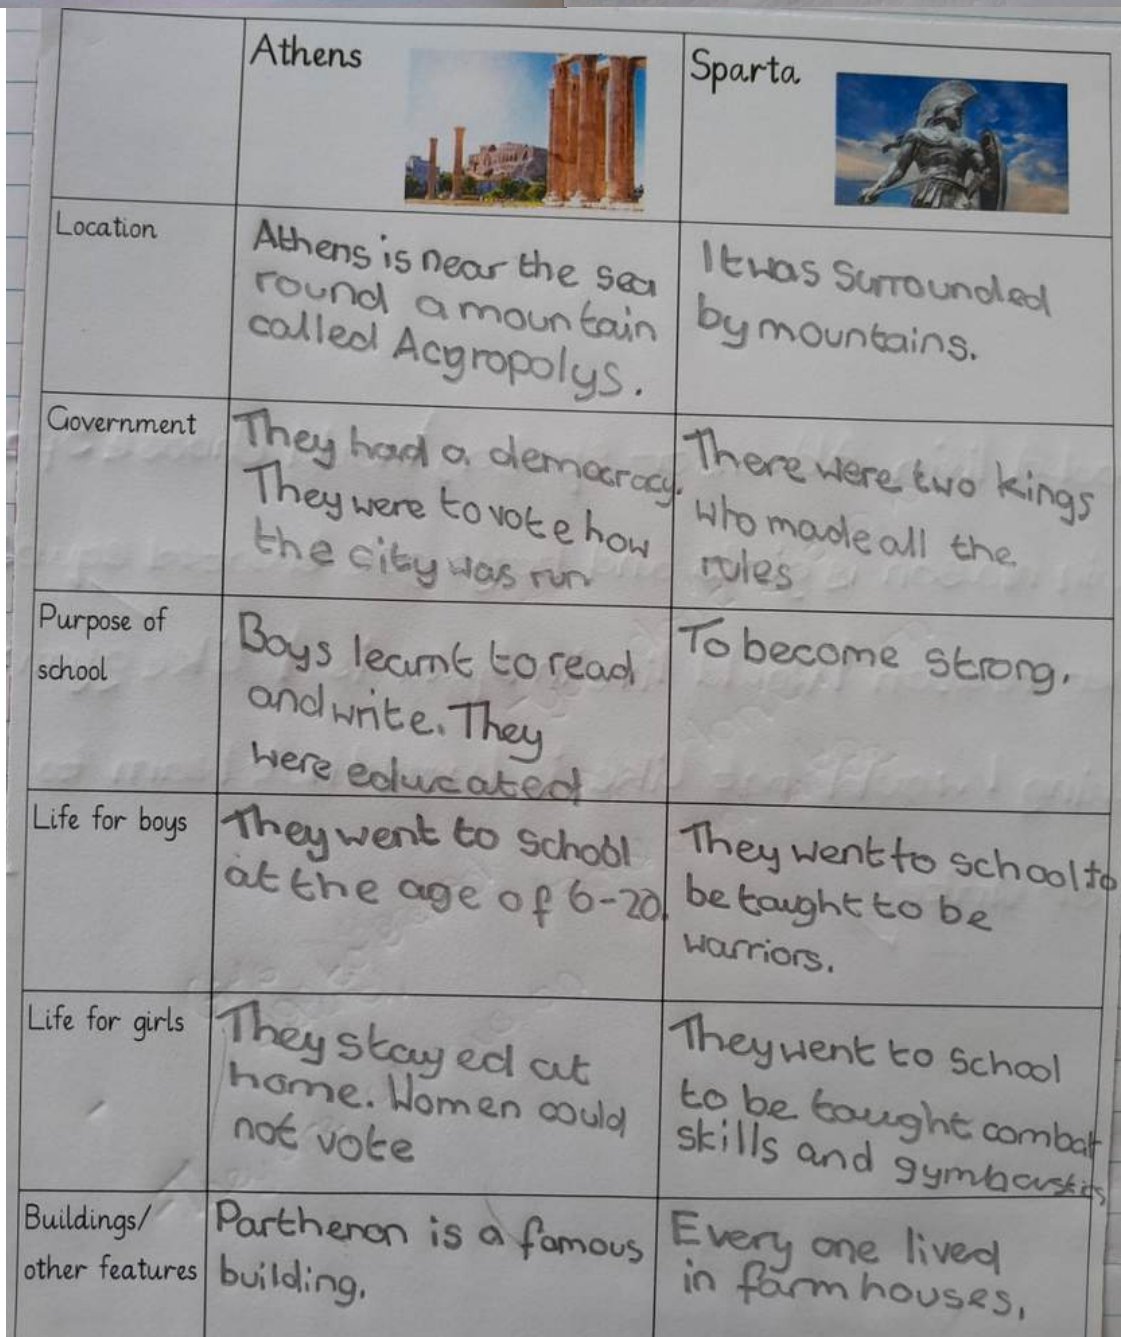 Athens
Sparta
Location
Athens is near the sea
round a mountain
called Acgropolys.
It was surrounded
by mountains.
Government
They had a democracy.
They were to vote how
the city was run
There were two kings
who made all the
rules
Purpose of
school
Boys learnt to read
and write. They
were educated
To become strong.
Life for boys
They went to school
at the age of 6-20.
They went to school to
be taught to be
warriors.
Life for girls
They stayed at
home. Women could
not vote
They went to school
to be taught combat
skills and
Buildings/
other features
Parthenon is a famous
building.
Every one lived
in farm houses.